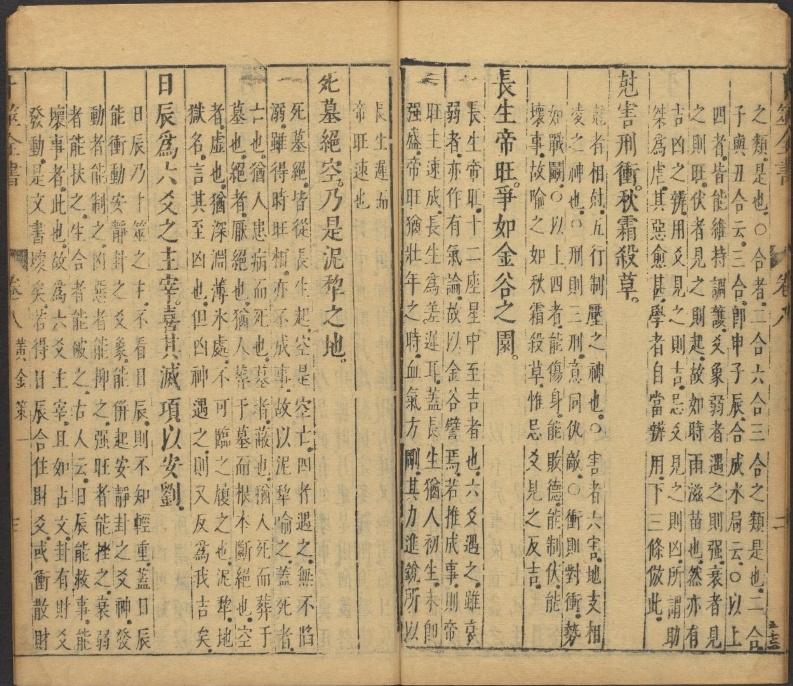 之類是也○合者二合六合三合之類是也二合
子與丑合云三合卽申子辰合成水局云○以上
四者皆能維持調護爻象弱者遇之則强衰者見
之則旺伏者見之則起故如時雨滋苗也然亦有
吉凶之辨用爻見之則吉忌爻見之則凶所謂助
桀爲虐其惡愈甚學者自當辨用下三條倣此
尅害刑衝秋霜殺草
尅者相尅五行制壓之神也○害者六害地支相
凌之神也○刑則三刑意同仇敵○衝則對衝勢
如戰鬪○以上四者能傷身能敗德能制伏能
壞事故喻之如秋霜殺草惟忌爻見之反吉
長生帝旺爭如金谷之園
長生帝旺十二座星中至吉者也六爻遇之雖衰
弱者亦作有氣論故以金谷譬焉若推成事則帝
旺主速成長生爲差遲耳蓋長生猶人初生未卽
强盛帝旺猶壯年之時血氣方剛其力進銳所以
長生遲而
帝旺速也
死墓絕空乃是泥犂之地
死墓絕皆從長生起空是空亡四者遇之無不陷
溺雖得時旺相亦不成事故以泥犂喻之蓋死者
亡也猶人患病而死也墓者蔽也猶人死而葬于
墓也絕者厭絕也猶人葬于墓而根本斷絕也空
者虛也猶深淵薄氷處不可臨之履之也泥犂地
獄名言其至凶也但凶神遇之則又反爲我吉矣
日辰爲六爻之主宰喜其滅項以安劉
日辰乃卜筮之主不看日辰則不知輕重蓋日辰
能衝動安靜卦之爻象能倂起安靜卦之爻神發
動者能制之凶惡者能抑之强旺者能挫之衰弱
者能扶之生合者能破之古人云日辰能救事能
壞事者此也故爲六爻主宰且如占文卦有財爻
發動是文書壞矣若得日辰合住財爻或衝散財
卷八 黃金策一